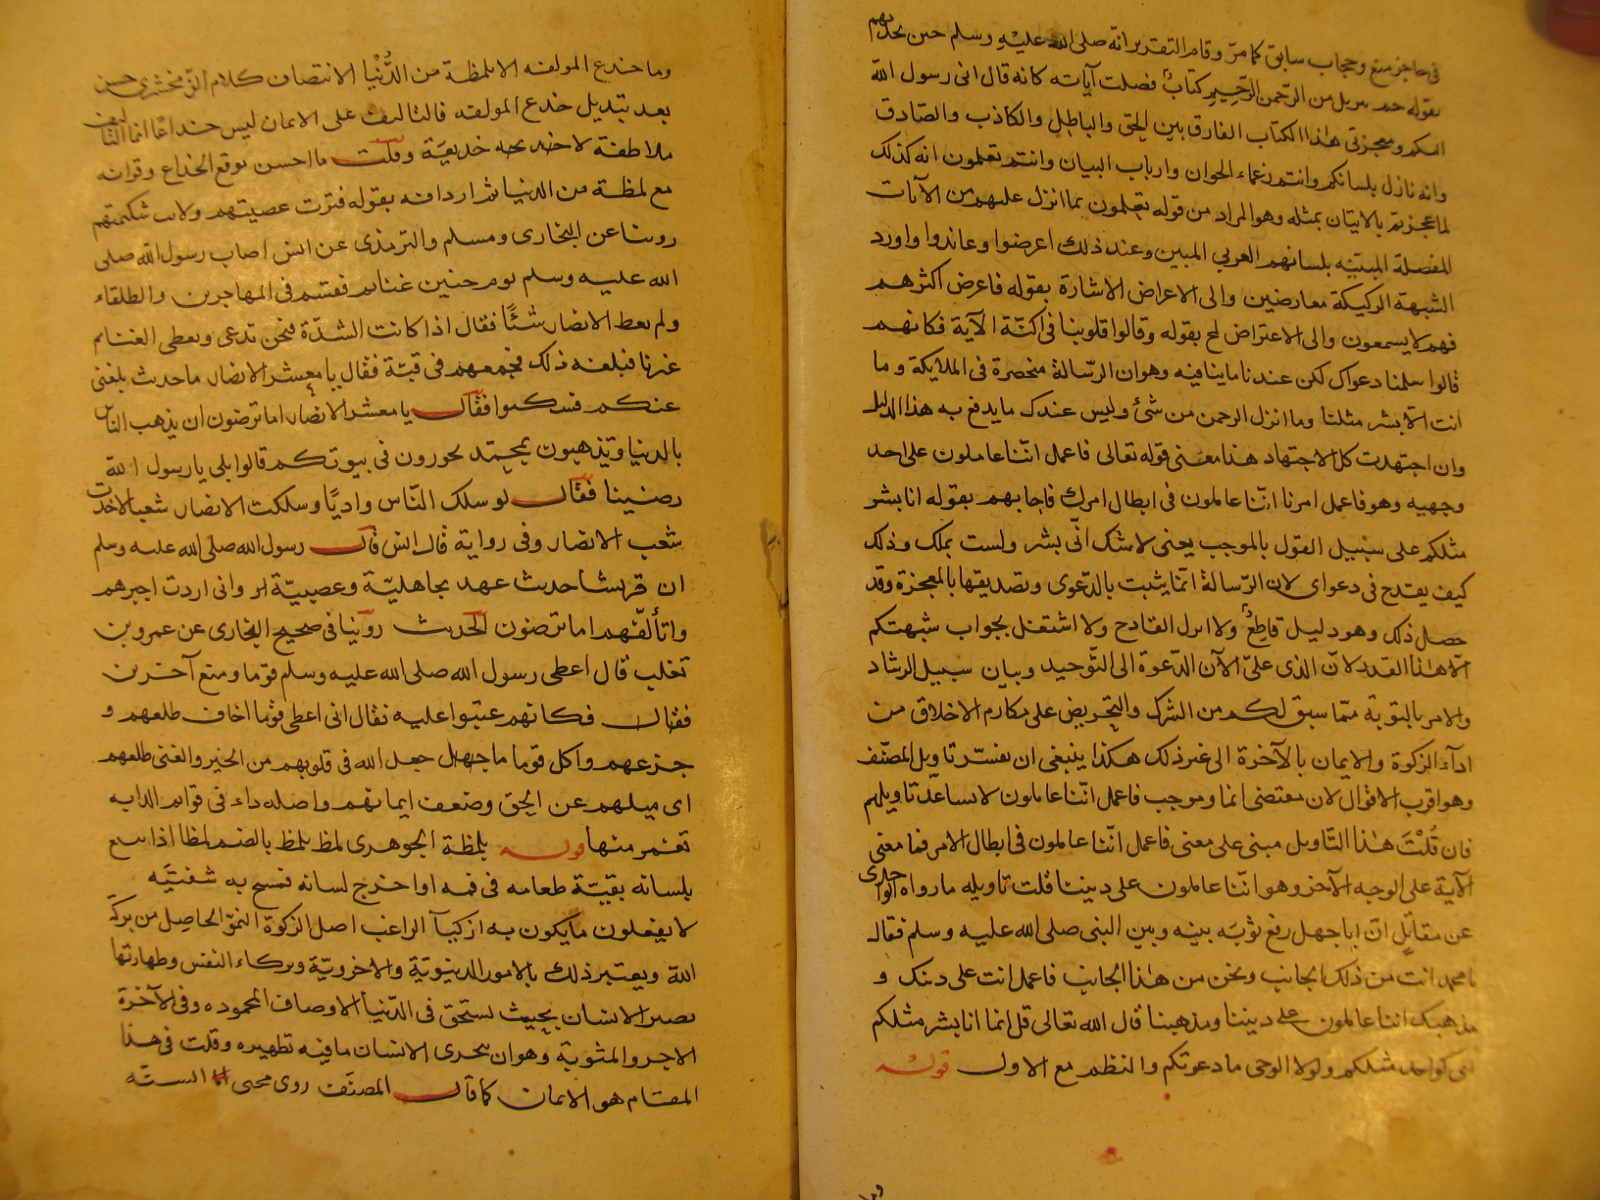 في حاجز منيع وحجاب سابق كما مرّ وقام التقدير انه صلى الله عليه وسلم حين تحديهم
بقوله حم تنزيل من الرّحمن الرّحيم كتابٌ فصلت آياته كانه قال اني رسول الله
اليكم ومعجزتي هذا الكتاب الفارق بين الحق والباطل والكاذب والصّادق
وانه نازل بلسانكم وانتم زعماء الحوار وارباب البيان وانتم تعلمون انه كذلك
لما عجزتم بالاتيان بمثله وهو المراد من قوله تعلمون بما انزل عليهم من الآيات
المفصلة المبيّنة بلسانهم العربي المبين وعند ذلك اعرضوا وعاندوا واورد
الشبهة الركيكة معارضين والى الاعراض الاشارة بقوله فاعرض اكثرهم
فهم لا يسمعون والى الاعتراض لمح بقوله وقالوا قلوبنا في اكنّة الآية فكانهم
قالوا سلمنا دعواك لكن عندنا ما ينافيه وهو ان الرّسالة منحصرة في الملائكة وما
انت الّا بشر مثلنا وما انزل الرحمن من شئ وليس عندك ما يدفع به هذا الدليل
وان اجتهدت كل الاجتهاد هذا معنى قوله تعالى فاعمل انّنا عاملون على احد
وجهيه وهو فاعمل امرنا انّنا عاملون في ابطال امرك فاجابهم بقوله انا بشر
مثلكم على سبيل القول بالموجب يعني لا شك انّي بشر ولست بملك وذلك
كيف يقدح في دعواي لان الرّسالة انّما يثبت بالدّعوى وتصديقها بالمعجزة وقد
حصل ذلك وهو دليل قاطعٌ ولا القادح ولا اشتغل بجواب شبهتكم
الّا هذا القدر لانّ الذي علىّ الآن الدّعوة الى التّوحيد وبيان سبيل الرشاد
والامر بالتوبة ممّا سبق لكم من الشرك والتحريض على مكارم الاخلاق من
ادآء الزكوة والايمان بالآخرة الى غير ذلك هكذا ينبغي ان يفسّر تاويل المصنّف
وهو اقرب الاقوال لان مقتضى انما وموجب فاعمل انّنا عاملون لا يساعد تاويلهم
فان قُلْتَ هذا التّاويل مبني على معنى فاعمل انّنا عاملون في ابطال الامر فما معنى
الآية على الوجه الآخر وهو انّنا عاملون على ديننا قلت تاويله ما رواه الواحدى
عن مقاتلٍ انّ ابا جهل رفع ثوبَه بينه وبين النبي صلى الله عليه وسلم فقال
يا محمد انت من ذلك الجانب ونحن من هذا الجانب فاعمل انت على دينك و
مذهبك اننا عاملون على ديننا ومذهبنا قال الله تعالى قل انما انا بشر مثلكم
اي كواحد مثلكم ولولا الوحي ما دعوتكم والنظم مع الاول قوله
وما خدع المولفة الا بلمظة من الدُّنْيا الانتصاف كلام الزّمخشري حسن
بعد تبديل خدع المولفة فالتاليف على الايمان ليس خداعًا انما التاليف
ملاطفة وقلت ما احسن موقع الخداع وقرانه
مع لمظة من الدنيا ثم اردافه بقوله فترت عصبيتهم ولانت شكيمتهم
روينا عن البخارى ومسلم والترمذى عن انس اصاب رسول الله صلى
الله عليه وسلم يوم حنين غنائم فقسم في المهاجرين والطلقاء
ولم يعط الانصار شيئًا فقال اذا كانت الشدّة فنحن ندعى ويعطى الغنائم
غيرنا فبلغه ذلك فجمعهم في قبّة فقال يا معشر الانصار ما حديث بلغني
عنكم فسكتوا فقال يا معشر الانصار اما ترضون ان يذهب الناس
بالدنيا وتذهبون بمحمّد تحوزون في بيوتكم قالوا بلى يا رسول الله
رضينا فقال لو سلك النّاس واديًا وسلكت الانصار شعبا لاخذت
شعب الانصار وفي رواية قال انس قال رسول الله صلى الله عليه وسلم
ان قريشا حديث عهد بجاهليّة وعصبيّة واني اردت اجبرهم
واتألّفهم اما ترضون الحديث روينا في صحيح البخارى عن عمرو بن
تغلب قال اعطى رسول الله صلى الله عليه وسلم قوما ومنع آخرين
فقال فكانهم عتبوا عليه فقال اني اعطى قومًا اخاف ظلعهم و
جزعهم واكل قوما ما جعل الله في قلوبهم من الخير والغنى ظلعهم
اى ميلهم عن الحق وضعف ايمانهم واصله داء في قوائم الدابه
تغمز منها قوله بلمظة الجوهرى لمظ يلمظ بالضم لمظا اذا تتبع
بلسانه بقيّة طعامه في فمه او اخرج لسانه فمسح به شفتيَه
لا يفعلون ما يكون به ازكيآ الراغب اصل الزكوة النموّ الحاصِل من بركَة
اللّه ويعتبر ذلك بالامور الدنيويّة والاخرويّة وبزكاء النفس وطهارتها
يصير الانسان بحيث يستحق في الدّنيا الاوصاف المحموده وفي الآخرة
الاجر والمثوبة وهو ان يتحرى الانسان ما فيه تطهيره وقلت في هذا
المقام هو الايمان كما قال المصنّف روى محيى السنّه